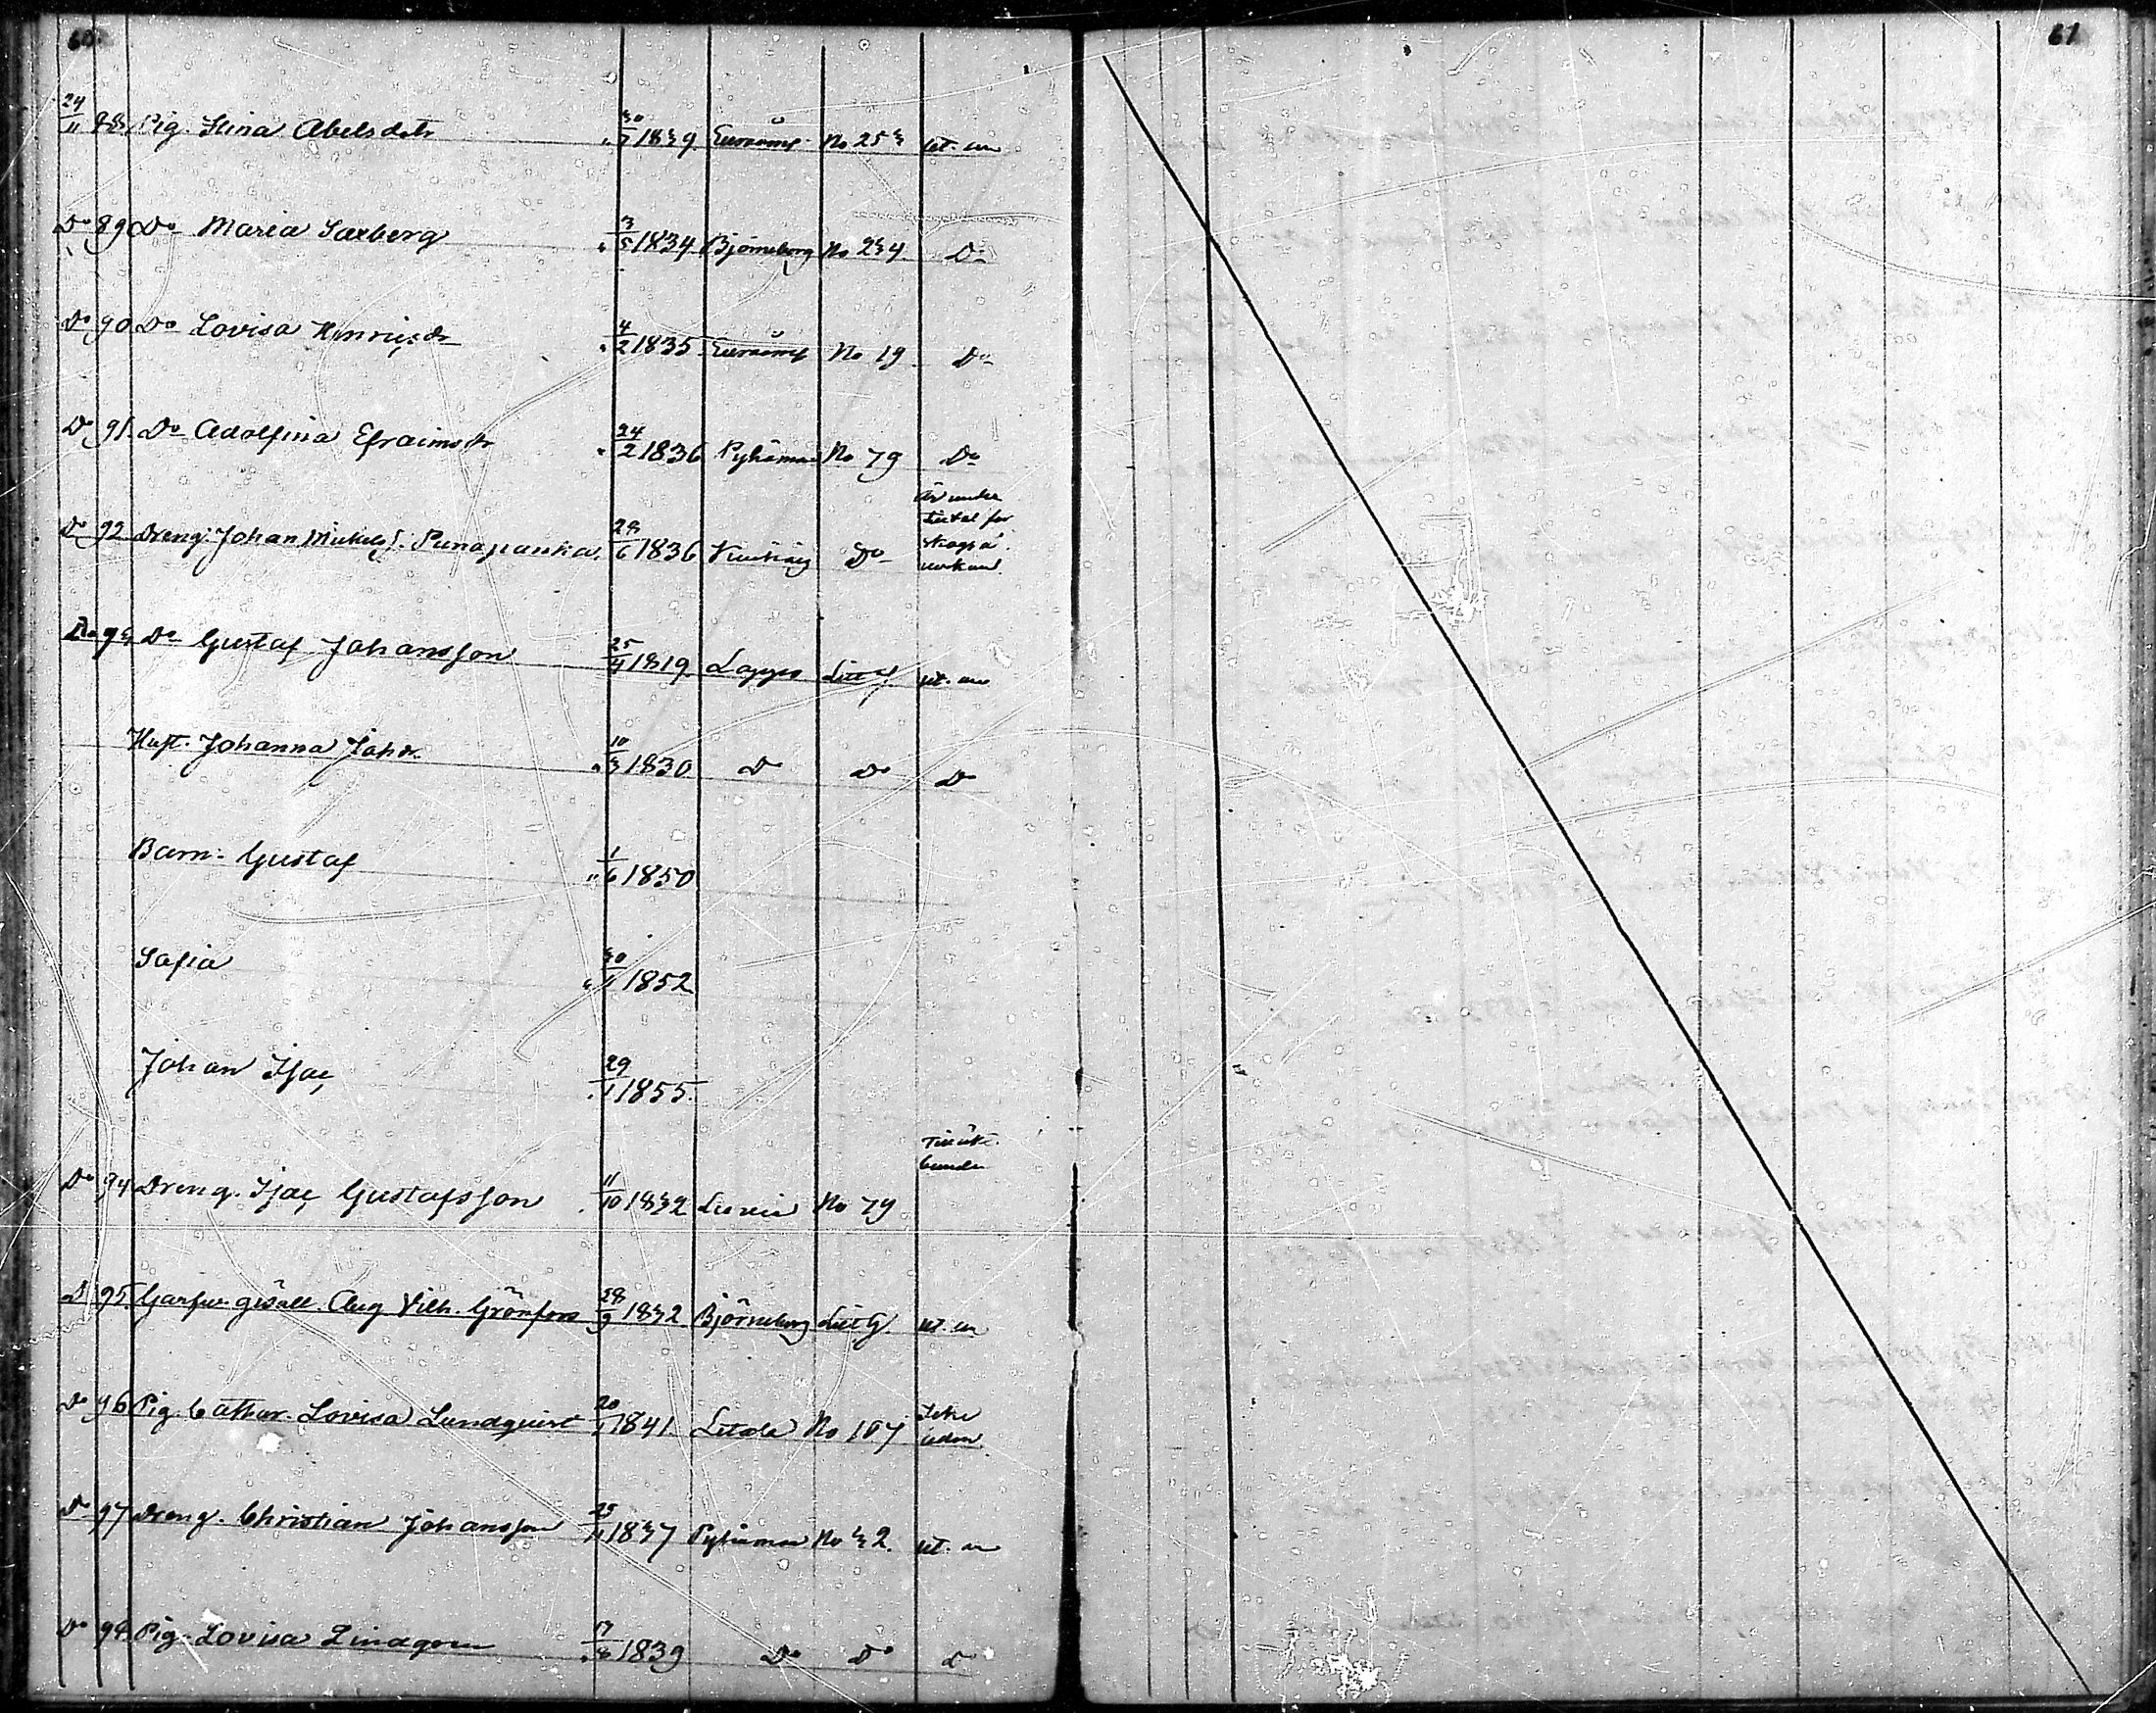 60
61
24/11 88. Pig. Stina Abelsdotr 30/7 1839 Euraåmi No 253 ut. an
Do 89 Do Maria Saxberg 3/5 1834 Björneborg No 234 Do
Do 90 Do Lovisa Henricsdr 4/2 1835 Euraåmi No 19 Do
Do 91. Do Adolfina Efraimsdr 24/2 1836 Pyhämaa No 79 Do
Do 92 Dreng. Johan Michels S. Punapanka 28/6 1836 Do
Är under
tiltal för
Do 93 Do Gustaf Johansson 25/4 1819 Lappo Litt ut. an
Hust. Johanna Johdr 10/3 1830 Do Do Do
Barn. Gustaf 1/6 1850
Safia 30/1 1852
Johan Isac 29/1 1855.
Do 94 Dreng. Isac Gustafsson 11/10 1832 Luvia No 79
Do 95. Garfv. gesäll. Aug Vilh. Grönfors 28/9 1832 Björneborg Litt G. ut. an
Do 96 Pig. Cathar. Lovisa Lundqvist 20/1 1841 Letala No 107
Do 97 Dreng. Christian Johansson 25/11 1837 Pyhämaa No 32. ut. an
Do 98. Pig. Lovisa Lindgren 17/8 1839 Do Do Do